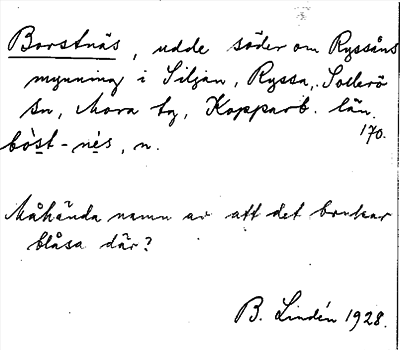 Borstnäs, udde söder om Ryssåns
mynning i Siljan, Ryssa, Sollerö
sn, Mora tg, Kopparb. län.
170.
bòst-nés, n.
Måhända namn av att det brukar
blåsa där?
B. Lindén 1928.